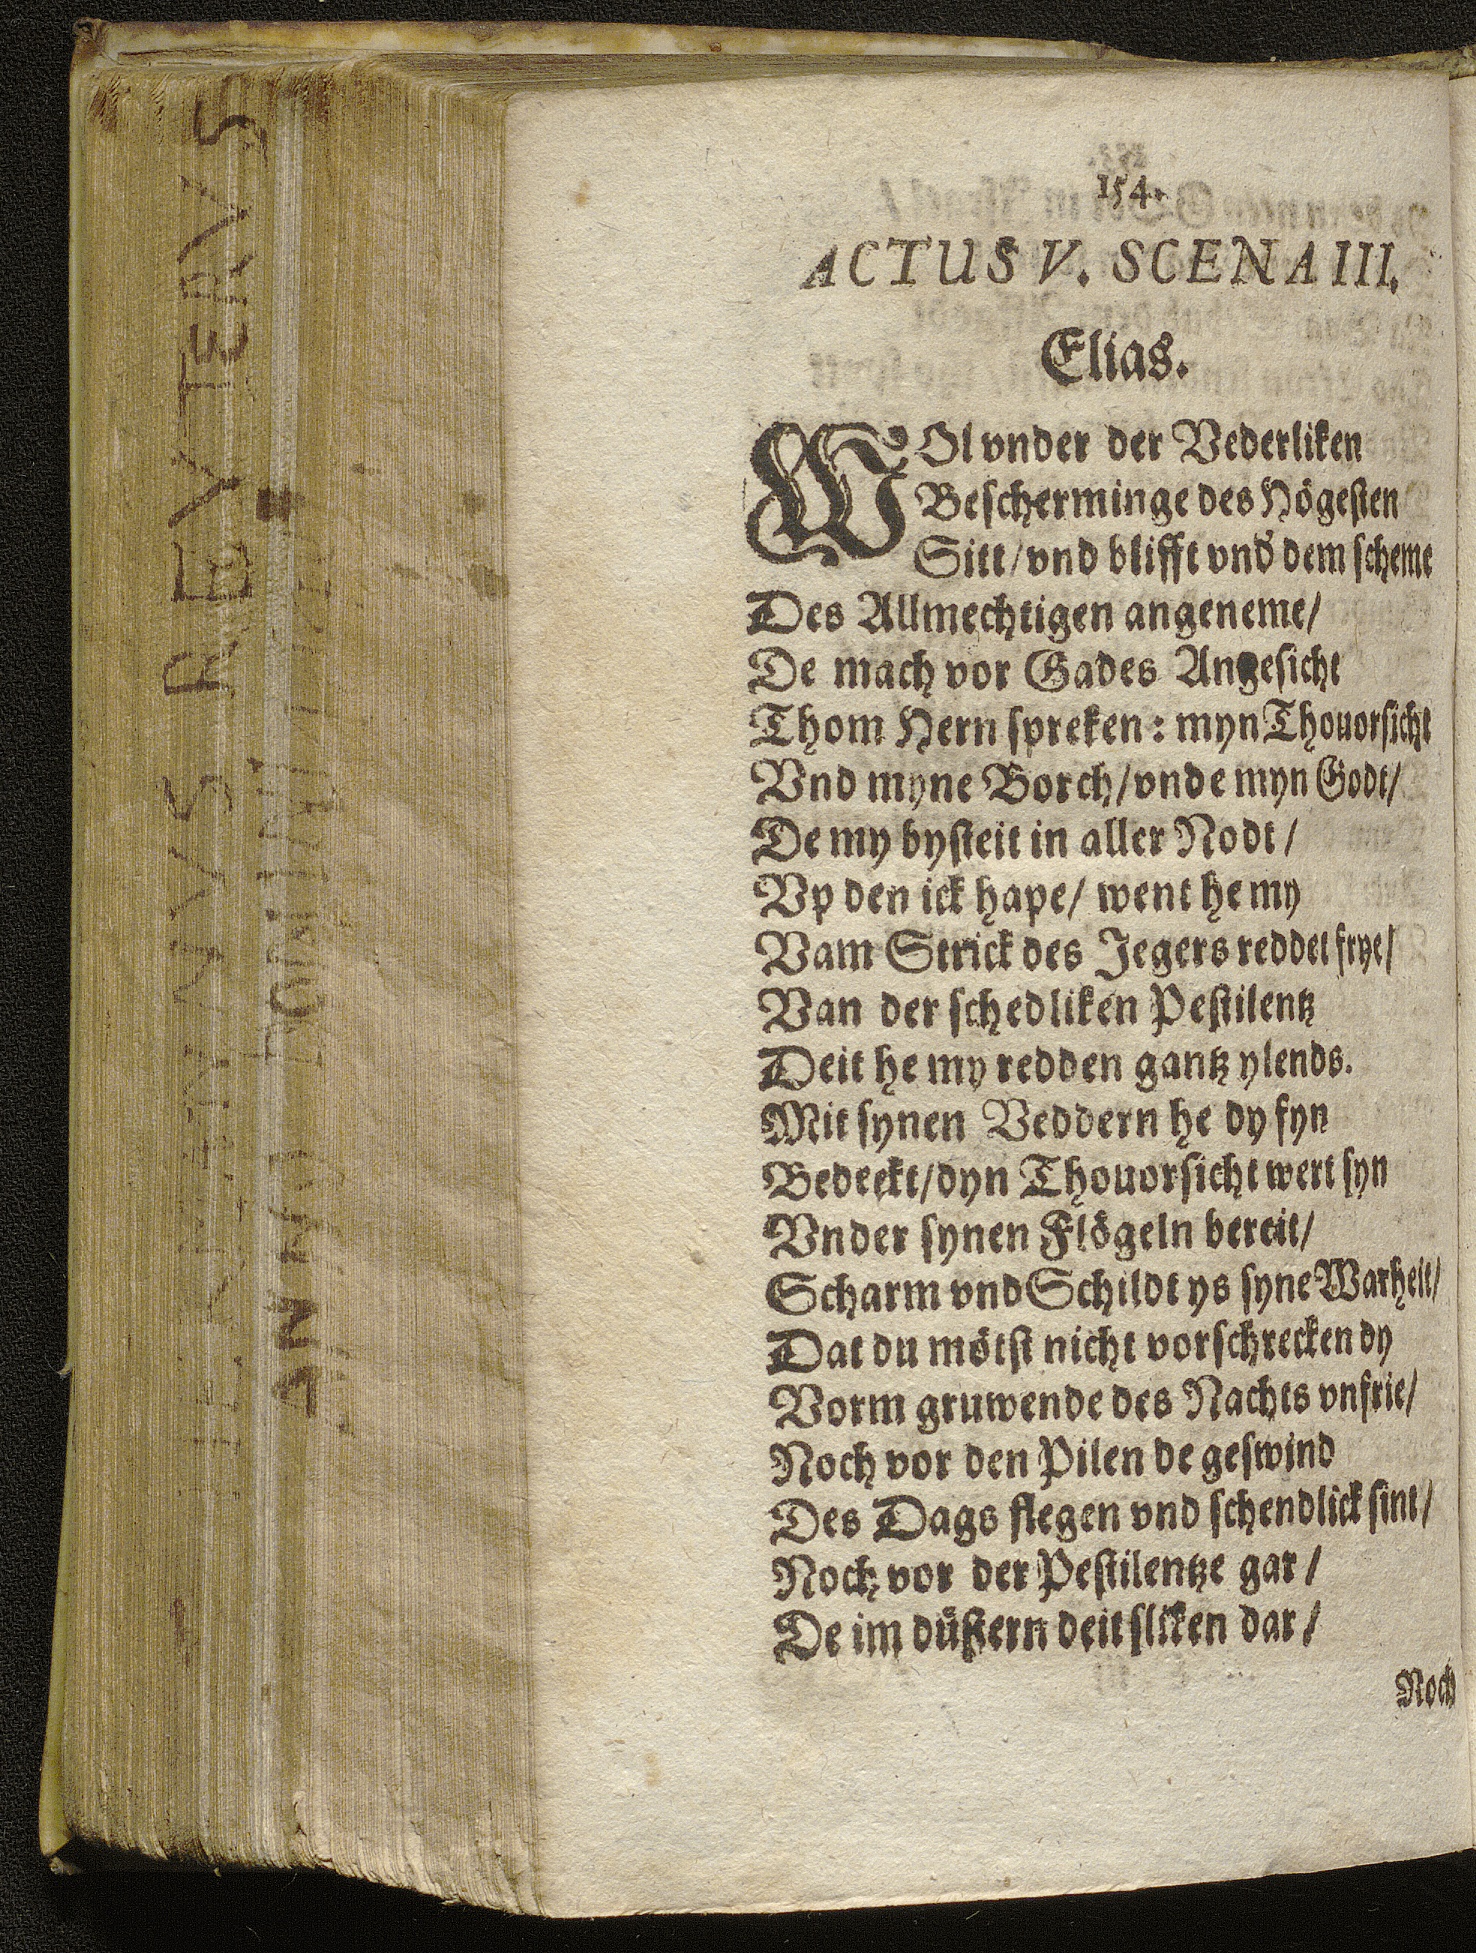 154.
ACTUS V. SCENA III.
Elias.
WOl vnder der Vederliken
Bescherminge des Högesten
Sitt/vnd blifft vnd̕ dem scheme
Des Allmechtigen angeneme/
De mach vor Gades Angesicht
Thom Hern spreken: myn Thouorsicht
Vnd myne Borch/vnde myn Godt/
De my bysteit in aller Nodt/
Vp den ick hape/ went he my
Vam Strick des Jegers reddet frye/
Van der schedliken Pestilentz
Deit he my redden gantz ylends.
Mit synen Veddern he dy fyn
Bedeekt/dyn Thouorsicht wert syn
Vnder synen Flögeln bereit/
Scharm vnd Schildt ys syne Warheit/
Dat du mötst nicht vorschrecken dy
Vorm gruwende des Nachts vnfrie/
Noch vor den Pilen de geswind
Des Dags flegen vnd schendlick sint/
Noch vor der Pestilentze gar/
De im düstern deit sliken dar/
Noch
REVTERVS
ANNO DOMINI